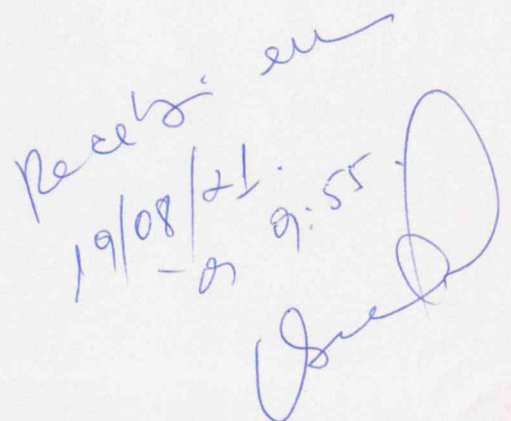 Recebi em
19/08/21.
às 9:55.